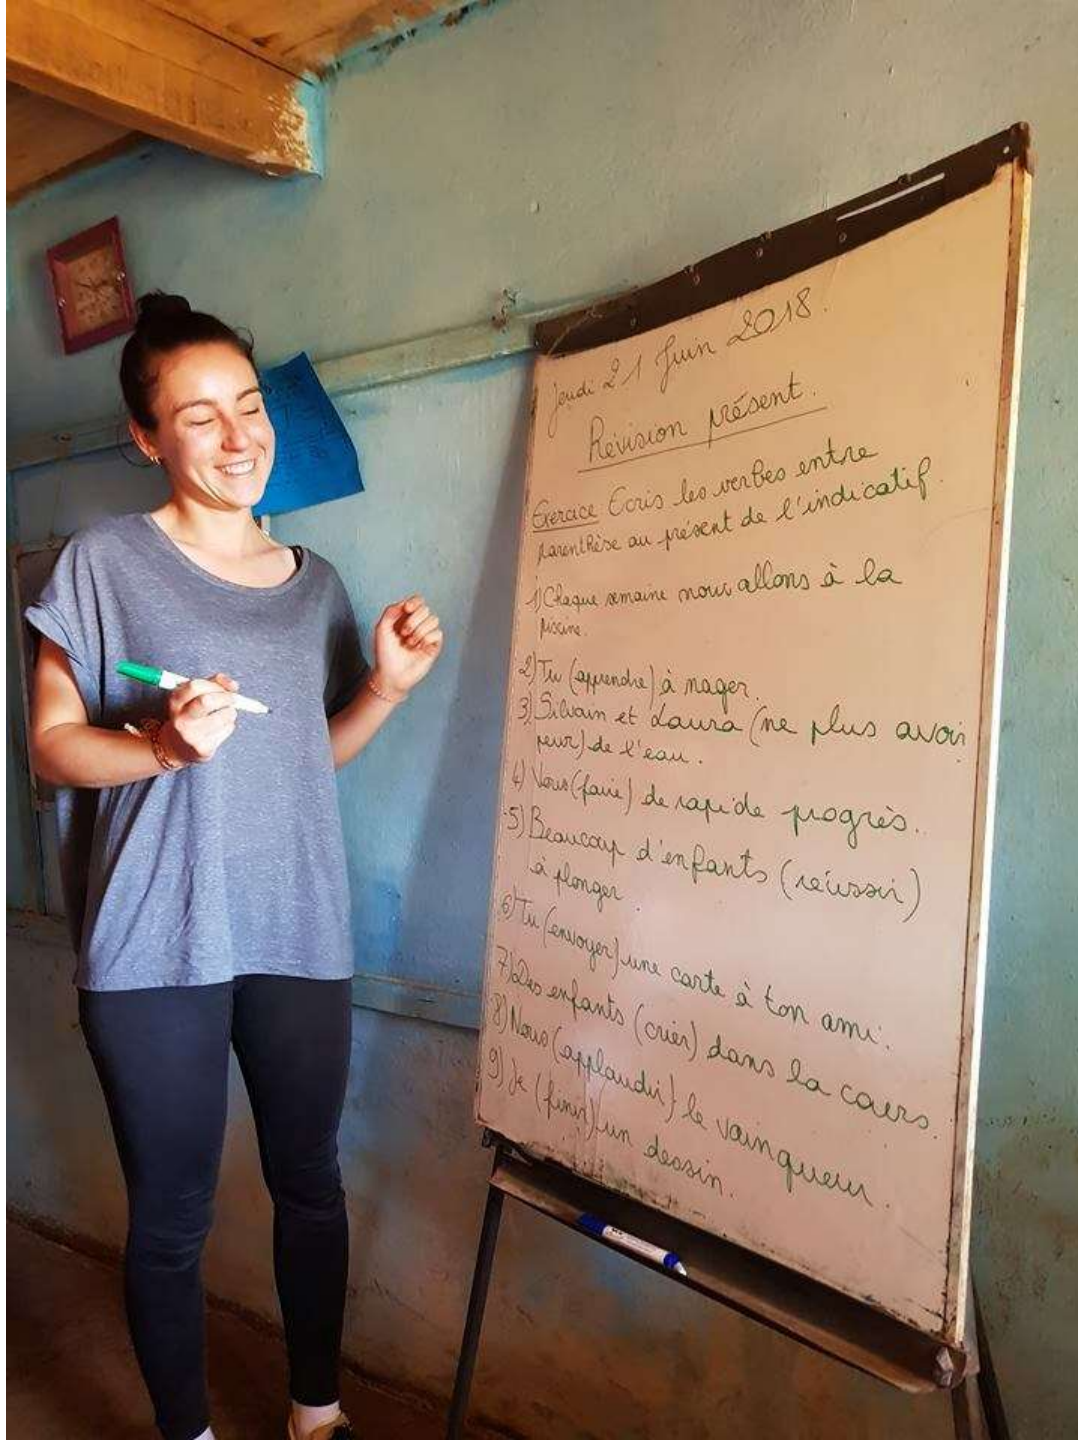 Jeudi 21 Juin 2018.
Révision présent.
Exercice Ecris les verbes entre
parenthèse au présent de l'indicatif.
1) Chaque semaine nous allons à la
piscine.
2) Tu (apprendre) à nager.
3) Silvain et Laura (ne plus avoir
peur) de l'eau.
4) Vous (faire) de rapide progrès.
5) Beaucoup d'enfants (réussir)
à plonger.
6) Tu (envoyer) une carte à ton ami.
7) Des enfants (crier) dans la cours.
8) Nous (applaudir) le vainqueur.
9) Je (finir) un dessin.